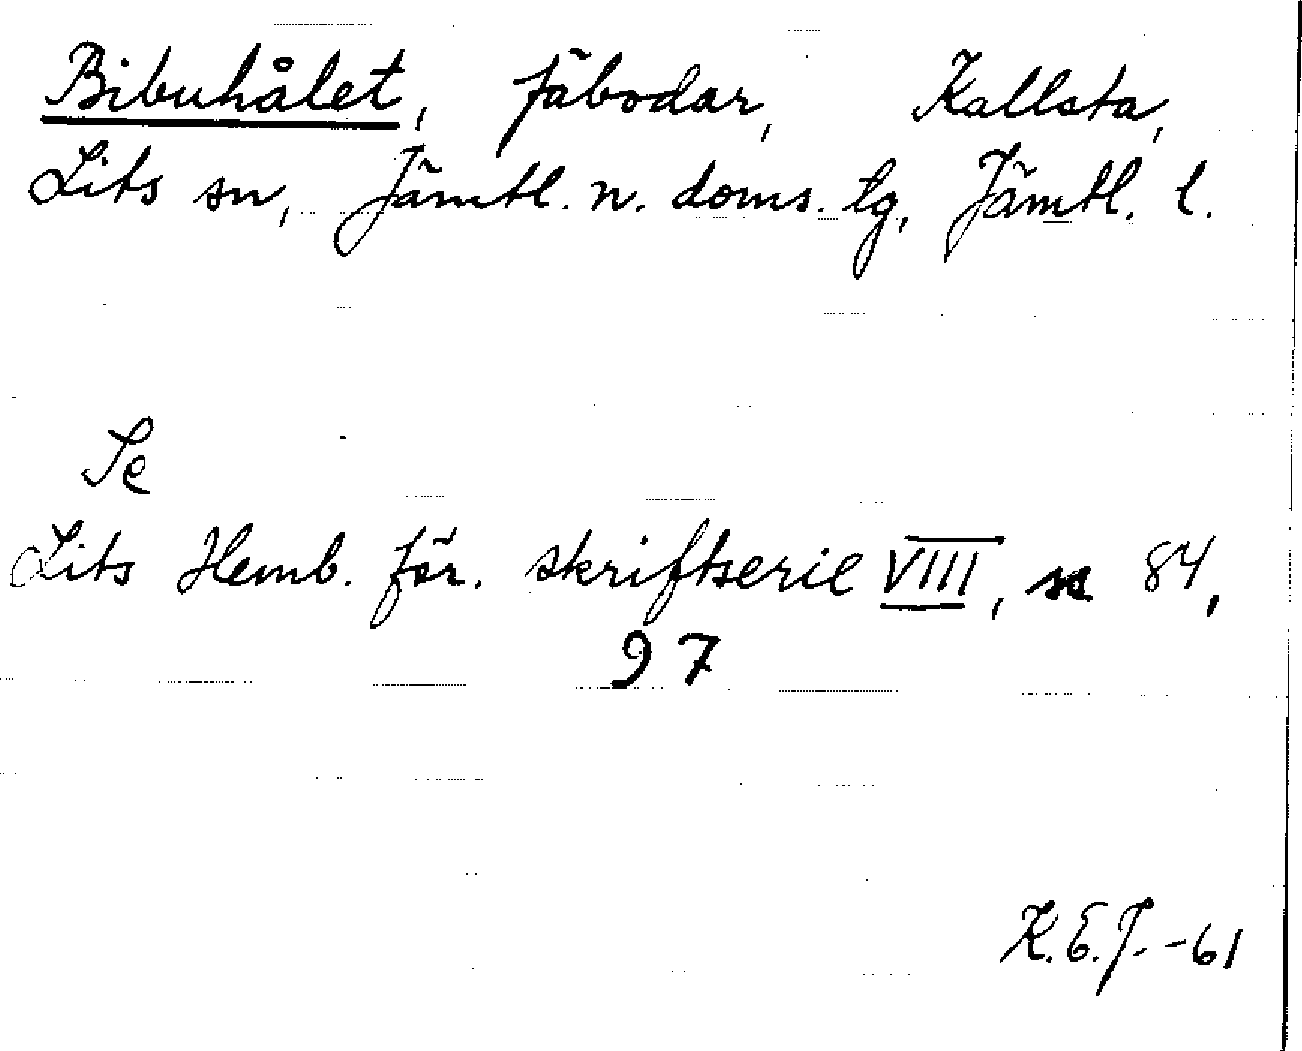 Bibuhålet, fäbodar, Kallsta,
Lits sn, Jämtl. n. doms. lg, Jämtl. l.
Se
Lits Hemb. för. skriftserie VIII, s 84,
97
K.E.J. -61